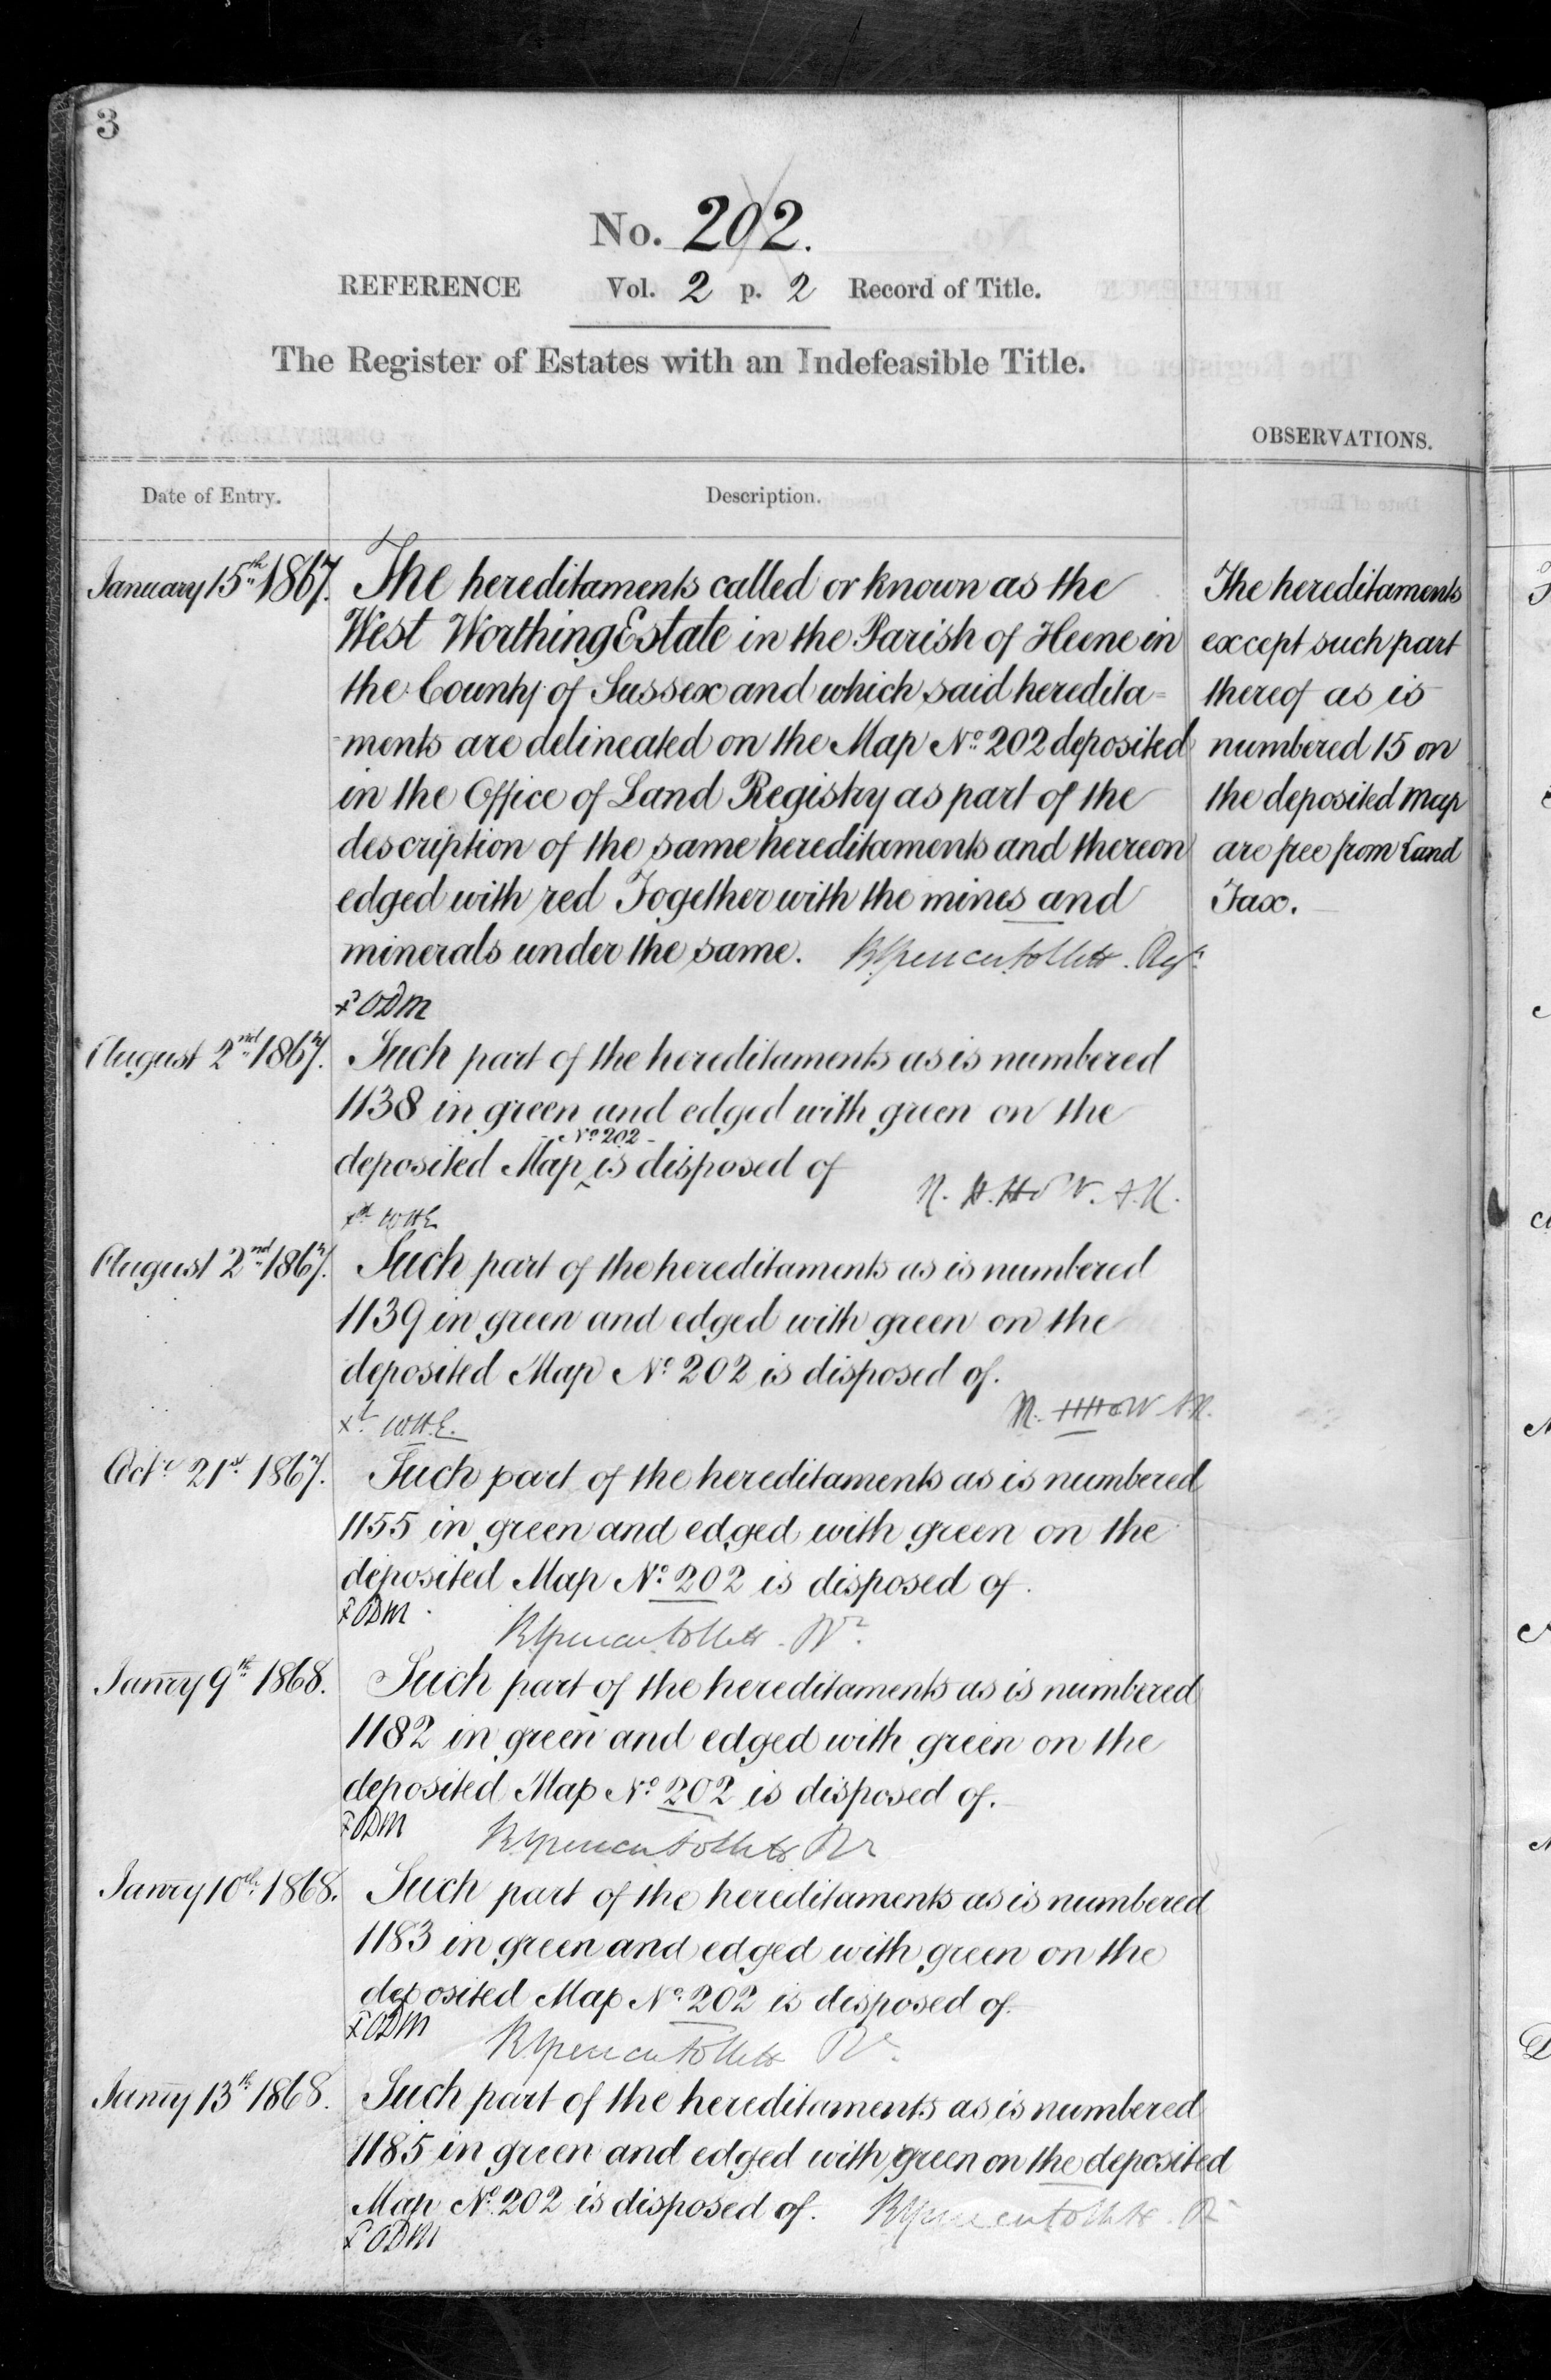 3
No. 202.
REFERENCE Vol. 2 p. 2 Record of Title.
The Register of Estates with an Indefeasible Title.
OBSERVATIONS.
Date of Entry. Description.
January 15th 1867. The hereditaments called or known as the
West Worthing Estate in the Parish of Heene in
the County of Sussex and which said heredita=
=ments are delineated on the Map No. 202 deposited
in the Office of Land Registry as part of the
description of the same hereditaments and thereon
edged with red Together with the mines and
minerals under the same.
The hereditaments
except such part
thereof as is
numbered 15 on
the deposited Map
are free from Land
Tax.
ODM
August 2nd 1867. Such part of the hereditaments as is numbered
1138 in green and edged with green on the
No 202
deposited Map is disposed of
WHE
August 2nd 1867. Such part of the hereditaments as is numbered
1139 in green and edged with green on the
deposited Map No 202 is disposed of.
W.H.E.
Octr 21st 1867. Such part of the hereditaments as is numbered
1155 in green and edged with green on the
deposited Map No. 202 is disposed of.
ODM
Janry 9th 1868. Such part of the hereditaments as is numbered
1182 in green and edged with green on the
deposited Map No 202 is disposed of.
ODM
Janry 10th 1868. Such part of the hereditaments as is numbered
1183 in green and edged with green on the
deposited Map No. 202 is disposed of.
ODM
Janry 13th 1868. Such part of the hereditaments as is numbered
1185 in green and edged with green on the deposited
Map No. 202 is disposed of.
ODM